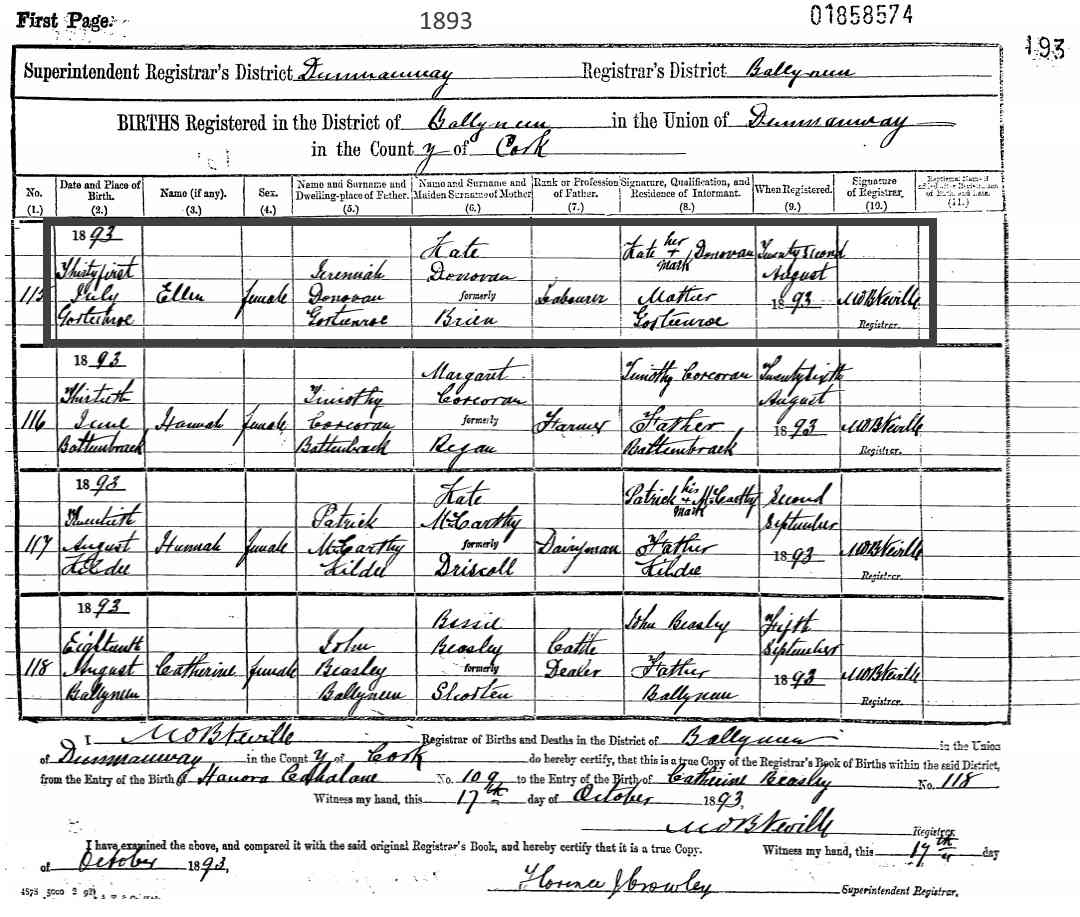 First Page.
1893
01858574
193
Superintendent Registrar's District Dunmanway Registrar's District Ballyneen
BIRTHS Registered in the District of Ballyneen in the Union of Dunmanway
in the County of Cork
No. Date and Place of Birth. Name (if any). Sex. Name and Surname and Dwelling-place of Father. Name and Surname and Maiden Surname of Mother. Rank or Profession of Father. Signature, Qualification, and Residence of Informant. When Registered. Signature of Registrar.
(1.) (2.) (3.) (4.) (5.) (6.) (7.) (8.) (9.) (10.) (11.)
1893 Kate Kate her + mark Donovan Twenty second
Thirty first Jeremiah Donovan August
115 July Ellen female Donovan formerly Labourer Mother 1893 MOBNeville
Gosteenroe Gosteenroe Brien Gosteenroe Registrar.
1893 Margaret Timothy Corcoran Twenty sixth
Thirtieth Timothy Corcoran August
116 June Hannah female Corcoran formerly Farmer Father 1893 MOBNeville
Bottenbrack Bottenbrack Regan Bottenbrack Registrar.
1893 Kate Patrick his + mark McCarthy Second
Twentieth Patrick McCarthy September
117 August Hannah female McCarthy formerly Dairyman Father 1893 MOBNeville
Kildee Kildee Driscoll Kildee Registrar.
1893 Bessie John Beasley Fifth
Eighteenth John Beasley Cattle September
118 August Catherine female Beasley formerly Dealer Father 1893 MOBNeville
Ballyneen Ballyneen Shorten Ballyneen Registrar.
I MOBNeville Registrar of Births and Deaths in the District of Ballyneen in the Union
of Dunmanway in the County of Cork do hereby certify, that this is a true Copy of the Registrar's Book of Births within the said District,
from the Entry of the Birth of Hanora Cahalane No. 109 to the Entry of the Birth of Catherine Beasley No. 118
Witness my hand, this 17th day of October 1893,
MOBNeville Registrar
I have examined the above, and compared it with the said original Registrar's Book, and hereby certify that it is a true Copy. Witness my hand, this 17th day
of October 1893,
Florence J Crowley Superintendent Registrar.
4573 5000 2 92